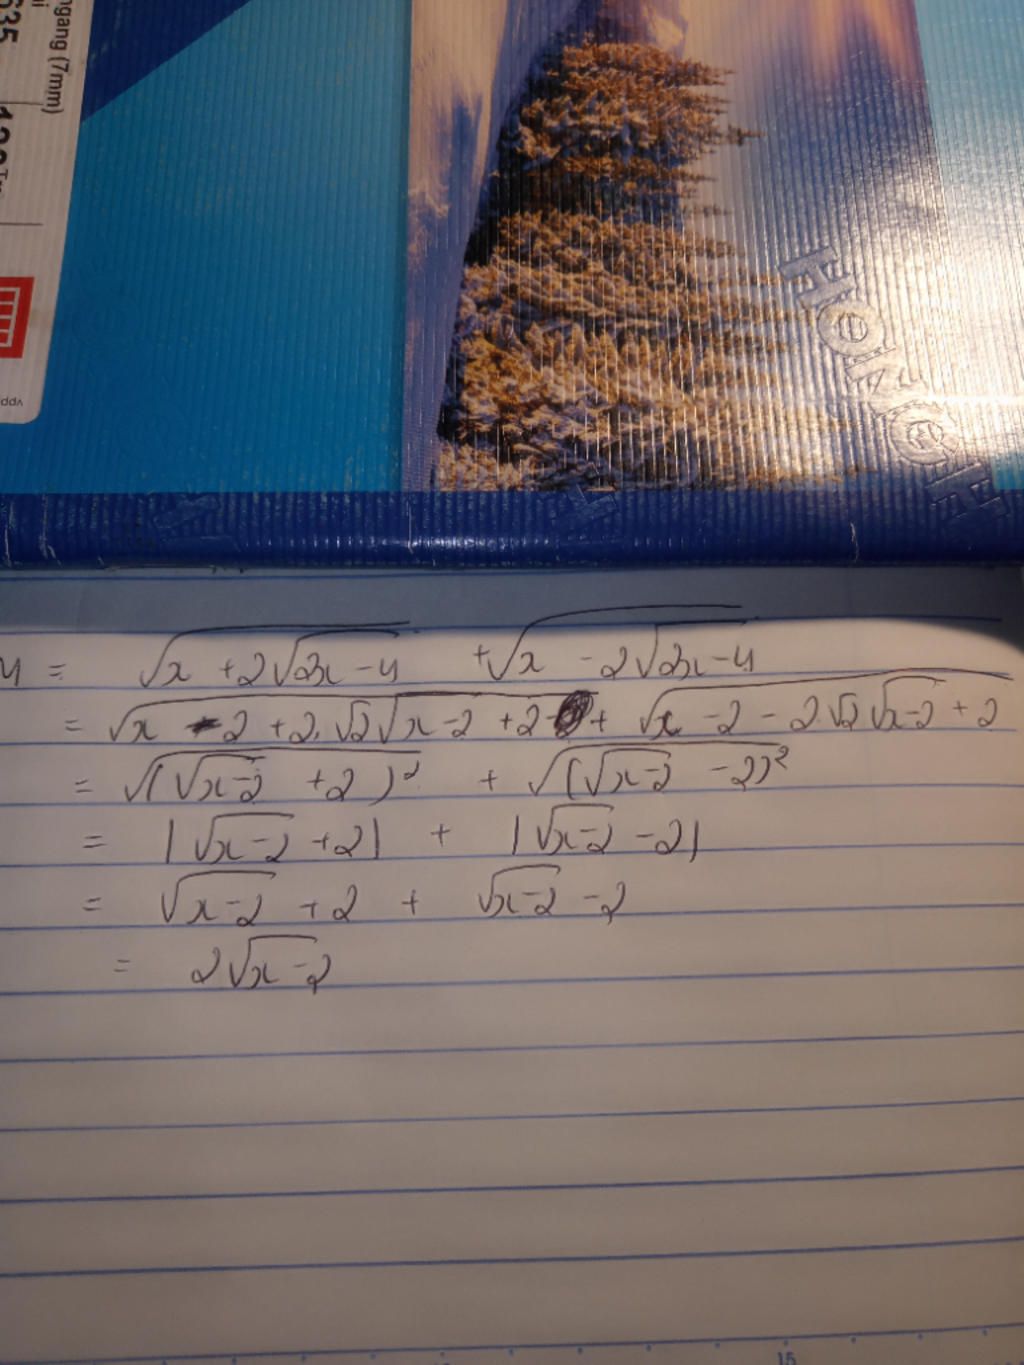 ngang (7mm)
635
HONGHA
vppd
4 = √(x + 2√(2x - 4)) + √(x - 2√(2x - 4))
= √(x - 2 + 2.√2√(x - 2) + 2) + √(x - 2 - 2.√2√(x - 2) + 2)
= √((√(x - 2) + 2)²) + √((√(x - 2) - 2)²)
= |√(x - 2) + 2| + |√(x - 2) - 2|
= √(x - 2) + 2 + √(x - 2) - 2
= 2√(x - 2)
15